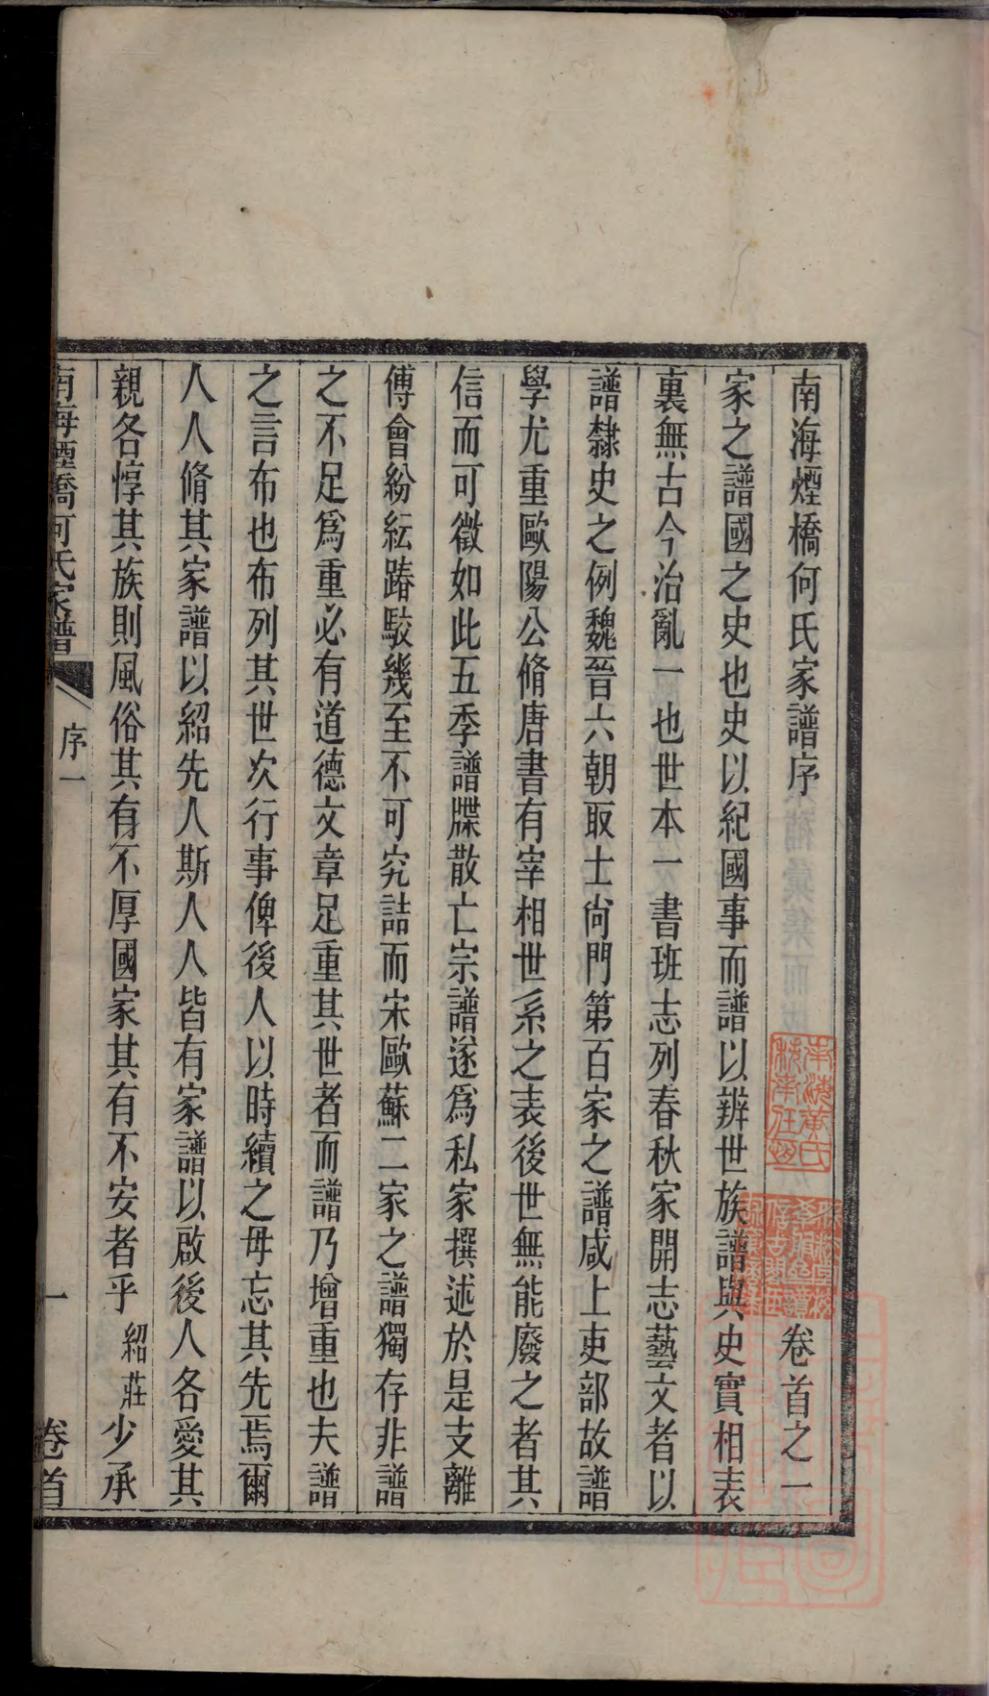 南海煙橋何氏家譜序 卷首之一
家之譜國之史也史以紀國事而譜以辨世族譜與史實相表
裏無古今治亂一也世本一書班志列春秋家開志藝文者以
譜隸史之例魏晉六朝取士尙門第百家之譜咸上吏部故譜
學尤重歐陽公脩唐書有宰相世系之表後世無能廢之者其
信而可徵如此五季譜牒散亡宗譜遂爲私家撰述於是支離
傅會紛紜踳駁幾至不可究詰而宋歐蘇二家之譜獨存非譜
之不足爲重必有道德文章足重其世者而譜乃增重也夫譜
之言布也布列其世次行事俾後人以時續之毋忘其先焉爾
人人脩其家譜以紹先人斯人人皆有家譜以啟後人各愛其
親各惇其族則風俗其有不厚國家其有不安者乎紹莊少承
南海煙橋何氏家譜 序一 一 卷首